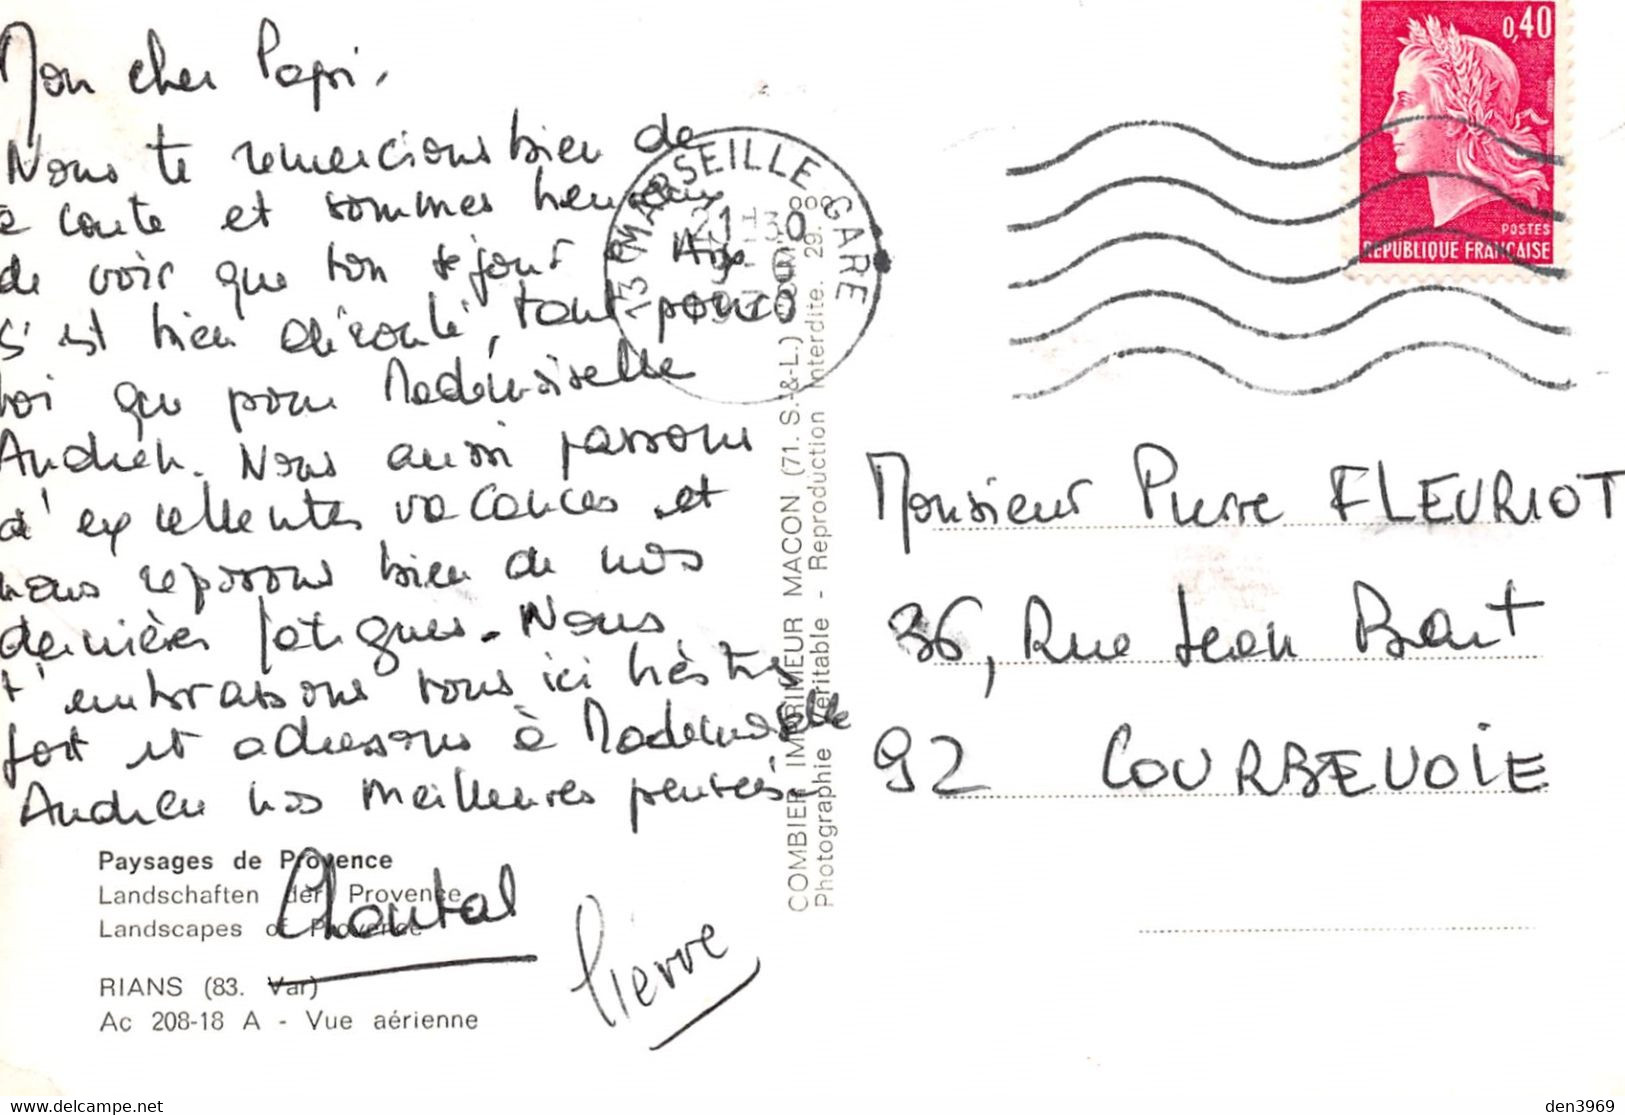 Mon cher Papi,
Nous te remercions bien de
ta carte et sommes heureux
de voir que ton séjour à Aix
s'est bien déroulé, tant pour
toi que pour Mademoiselle
Andrieu. Nous aussi passons
d'excellentes vacances et
nous reposons bien de nos
dernières fatigues. Nous
t'embrassons tous ici très très
fort et adressons à Mademoiselle
Andrieu nos meilleures pensées.
Chantal
Pierre
Paysages de Provence
Landschaften der Provence
Landscapes of Provence
RIANS (83. Var)
Ac 208-18 A - Vue aérienne
COMBIER IMPRIMEUR MACON (71. S.-&-L.)
Photographie véritable - Reproduction interdite.
13 MARSEILLE GARE
0,40
POSTES
REPUBLIQUE FRANÇAISE
Monsieur Pierre FLEURIOT
36, Rue Jean Bart
92 COURBEVOIE
delcampe.net
den3969